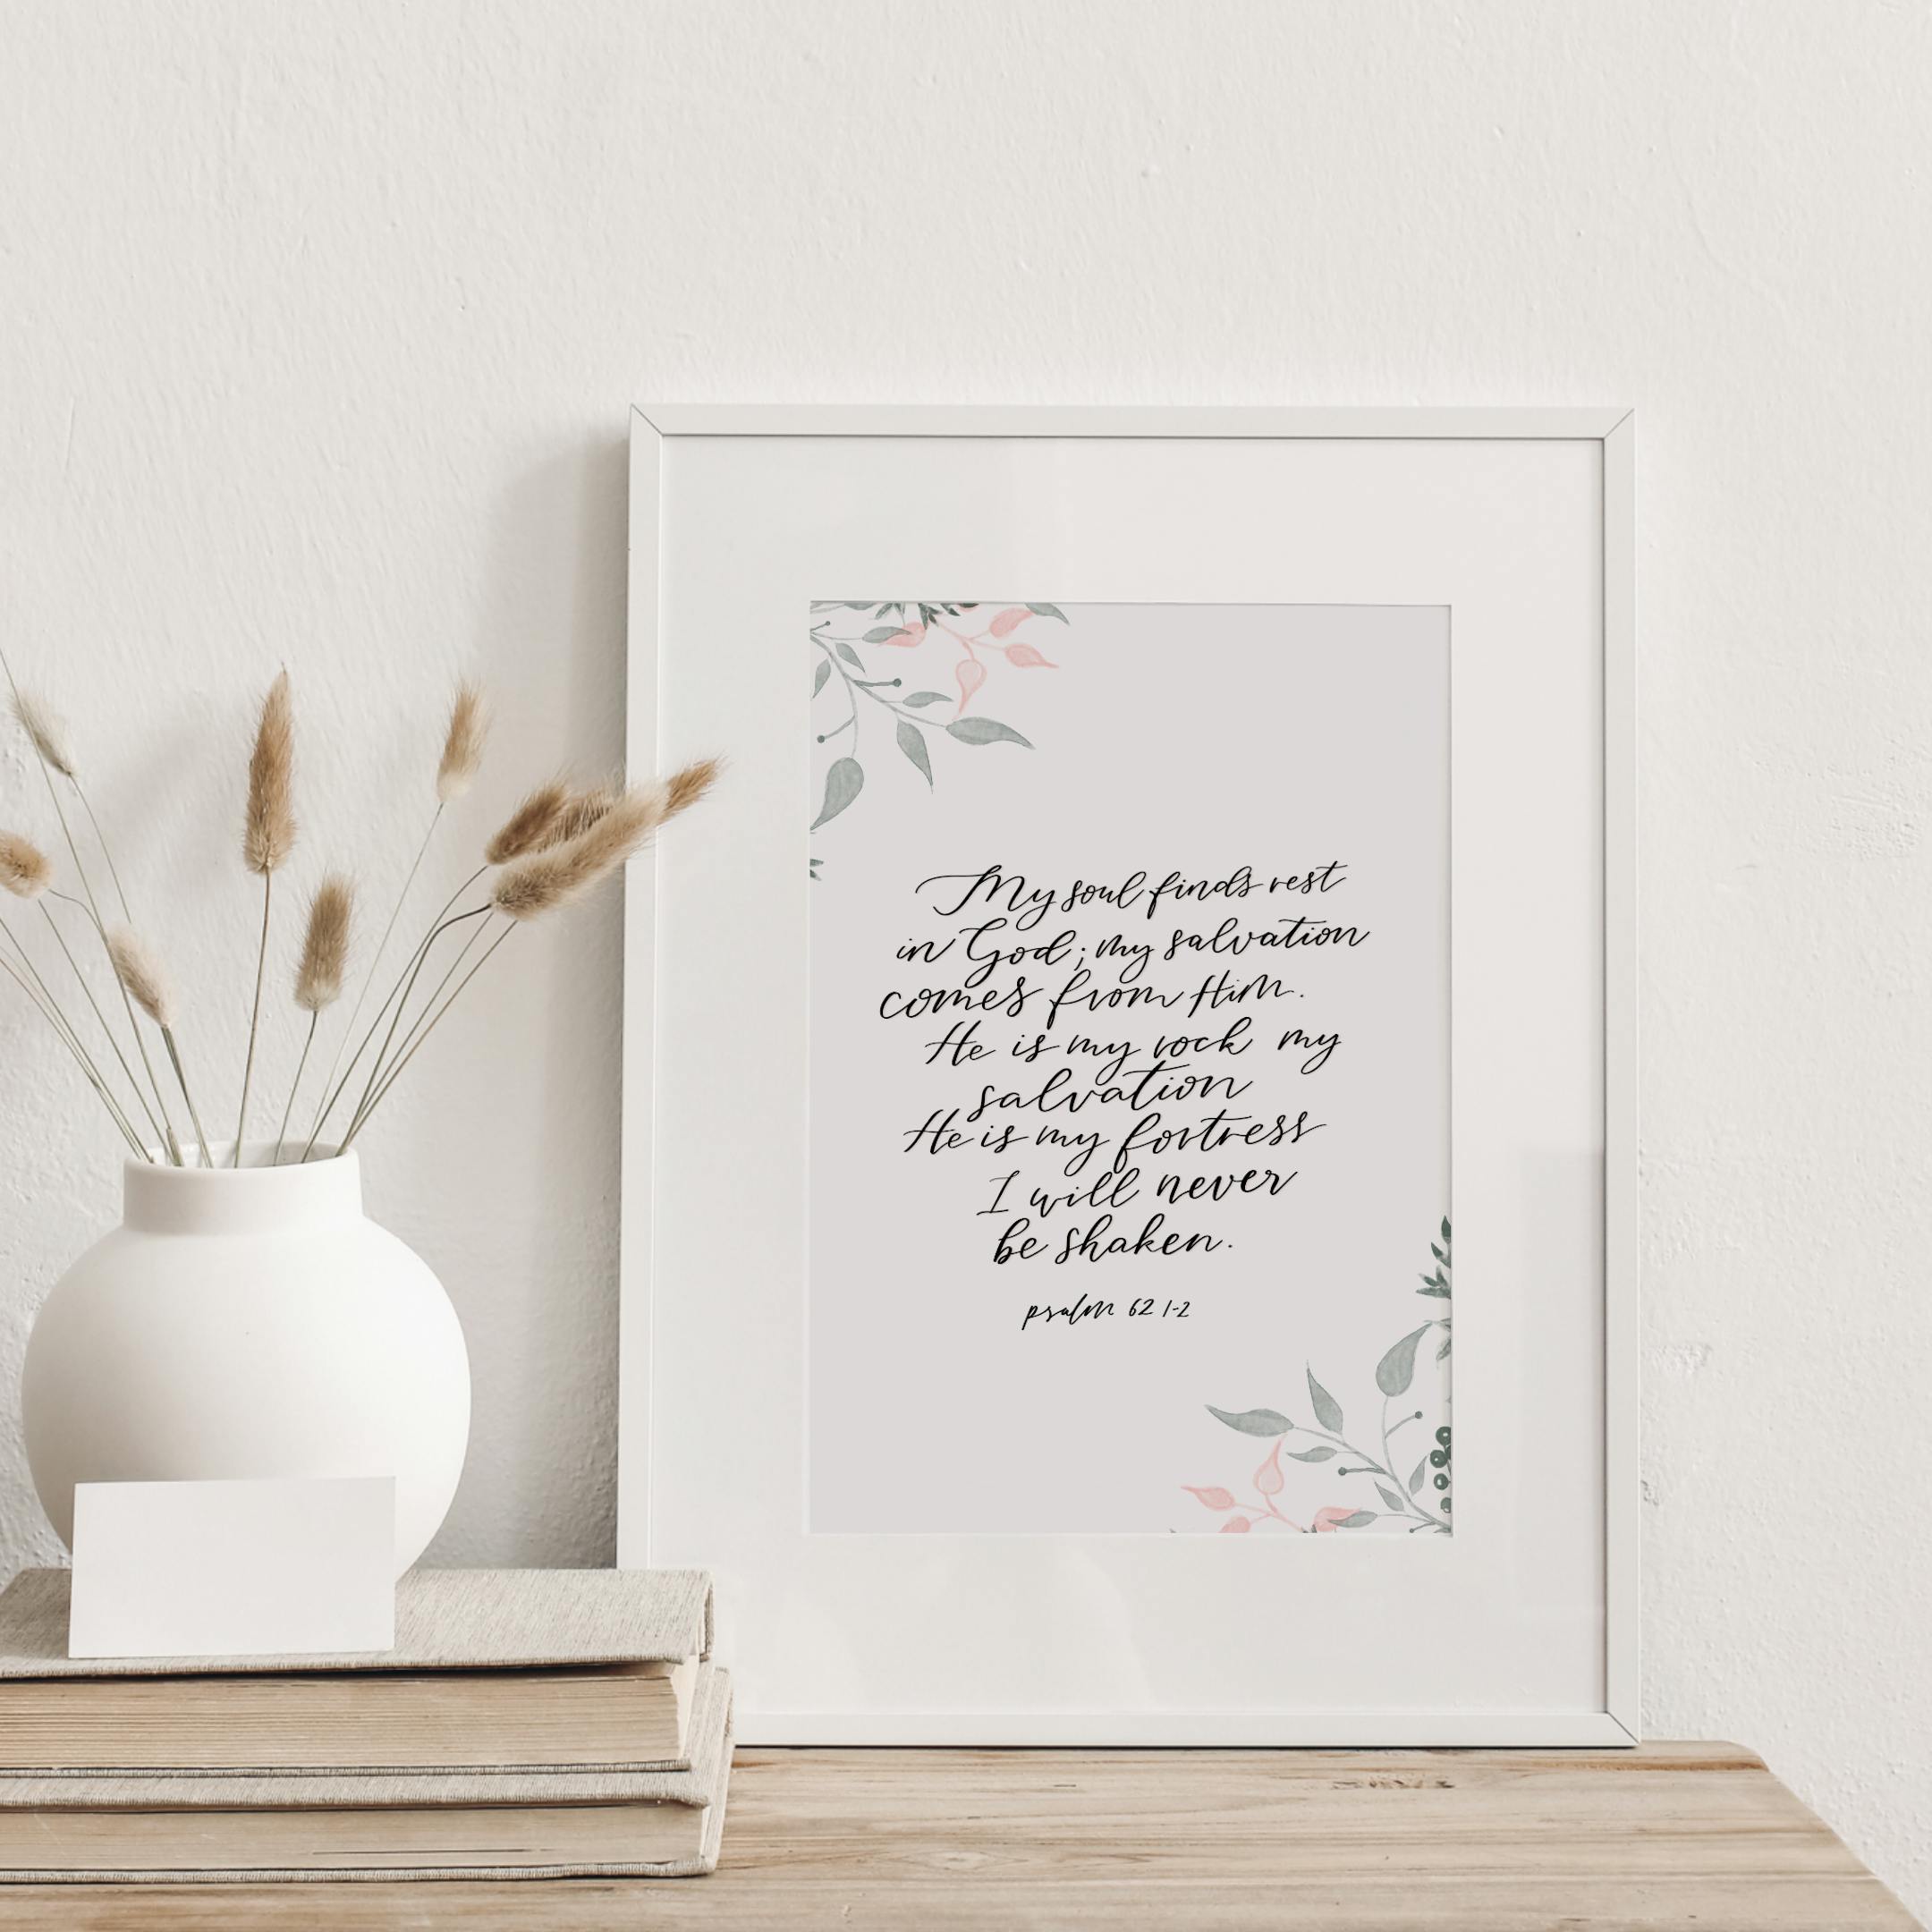 My soul finds rest
in God; my salvation
comes from Him.
He is my rock my
salvation
He is my fortress
I will never
be shaken.
psalm 62 1-2